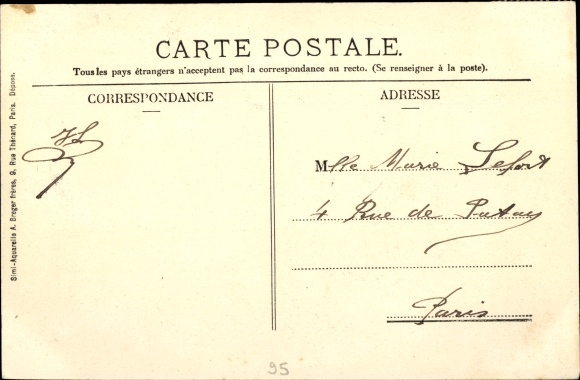 CARTE POSTALE.
Tous les pays étrangers n'acceptent pas la correspondance au recto. (Se renseigner à la poste).
CORRESPONDANCE
ADRESSE
Mlle Marie Lefort
4 Rue de Patay
Paris
Simi-Aquarelle A. Breger frères, 9, Rue Thénard, Paris. Déposé.
95